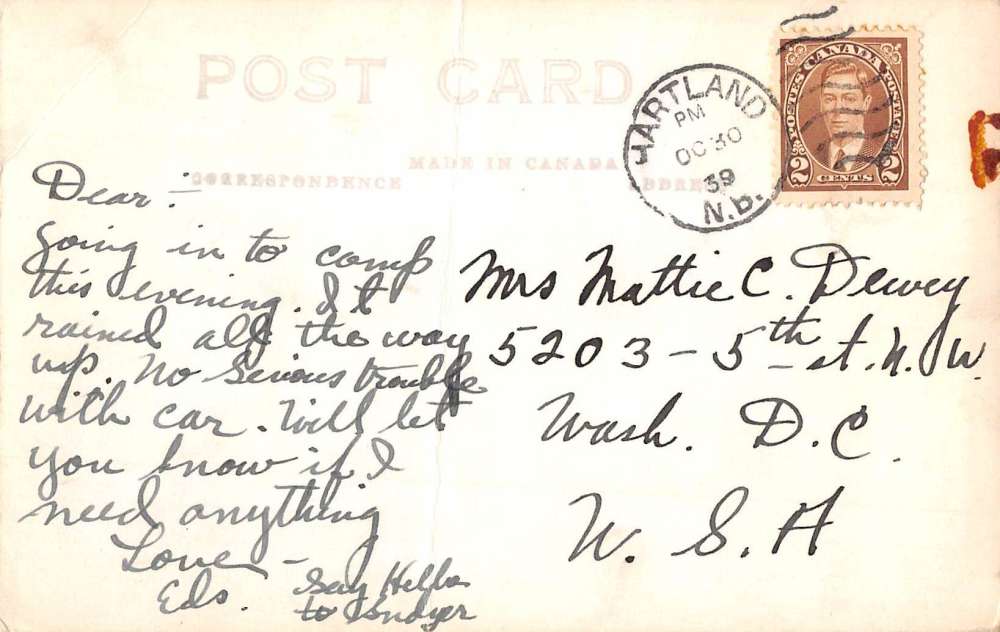 POST CARD
MADE IN CANADA
CORRESPONDENCE
HARTLAND
PM
OC 30
39
N.B.
POSTES CANADA POSTAGE
2 CENTS 2
Dear:-
Going in to camp
this evening. It
rained all the way
up. No serious trouble
with car. Will let
you know if I
need anything
Love -
Eds.
Say
to
Mrs Mattie C. Dewey
5203 - 5th st. N.W.
Wash. D.C.
U.S.A